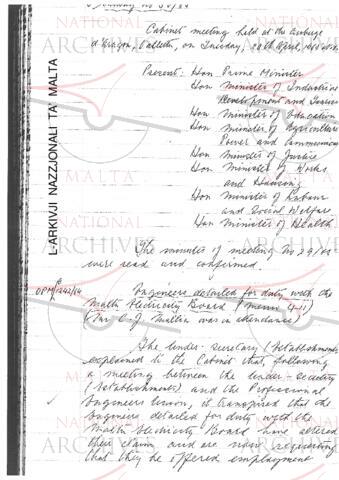 Cabinet meeting held at the Auberge
d'Aragon, Valletta, on Tuesday, 28th April,
Present: Hon. Prime Minister
Hon Minister of Industrial
Development and Tourism
Hon Minister of Education
Hon Minister of Agriculture
Power and Communications
Hon Minister of Justice
Hon Minister of Works
and Housing
Hon Minister of Labour
and Social Welfare
Hon Minister of Health
The minutes of meeting No 29/
were read and confirmed.
OPM/
Engineers detailed for duty with the
Malta Electricity Board
(Mr C. J. Mallia was in attendance)
The Under-Secretary (Establishments)
explained to the Cabinet that following
a meeting between the Under-Secretary
(Establishments) and the Professional
Engineers Union, it transpired that the
Engineers detailed for duty with the
Malta Electricity Board have altered
their claim and are now requesting
that they be offered employment
L-ARKIVJI NAZZJONALI TA' MALTA
NATIONAL
ARCHIVES
MALTA